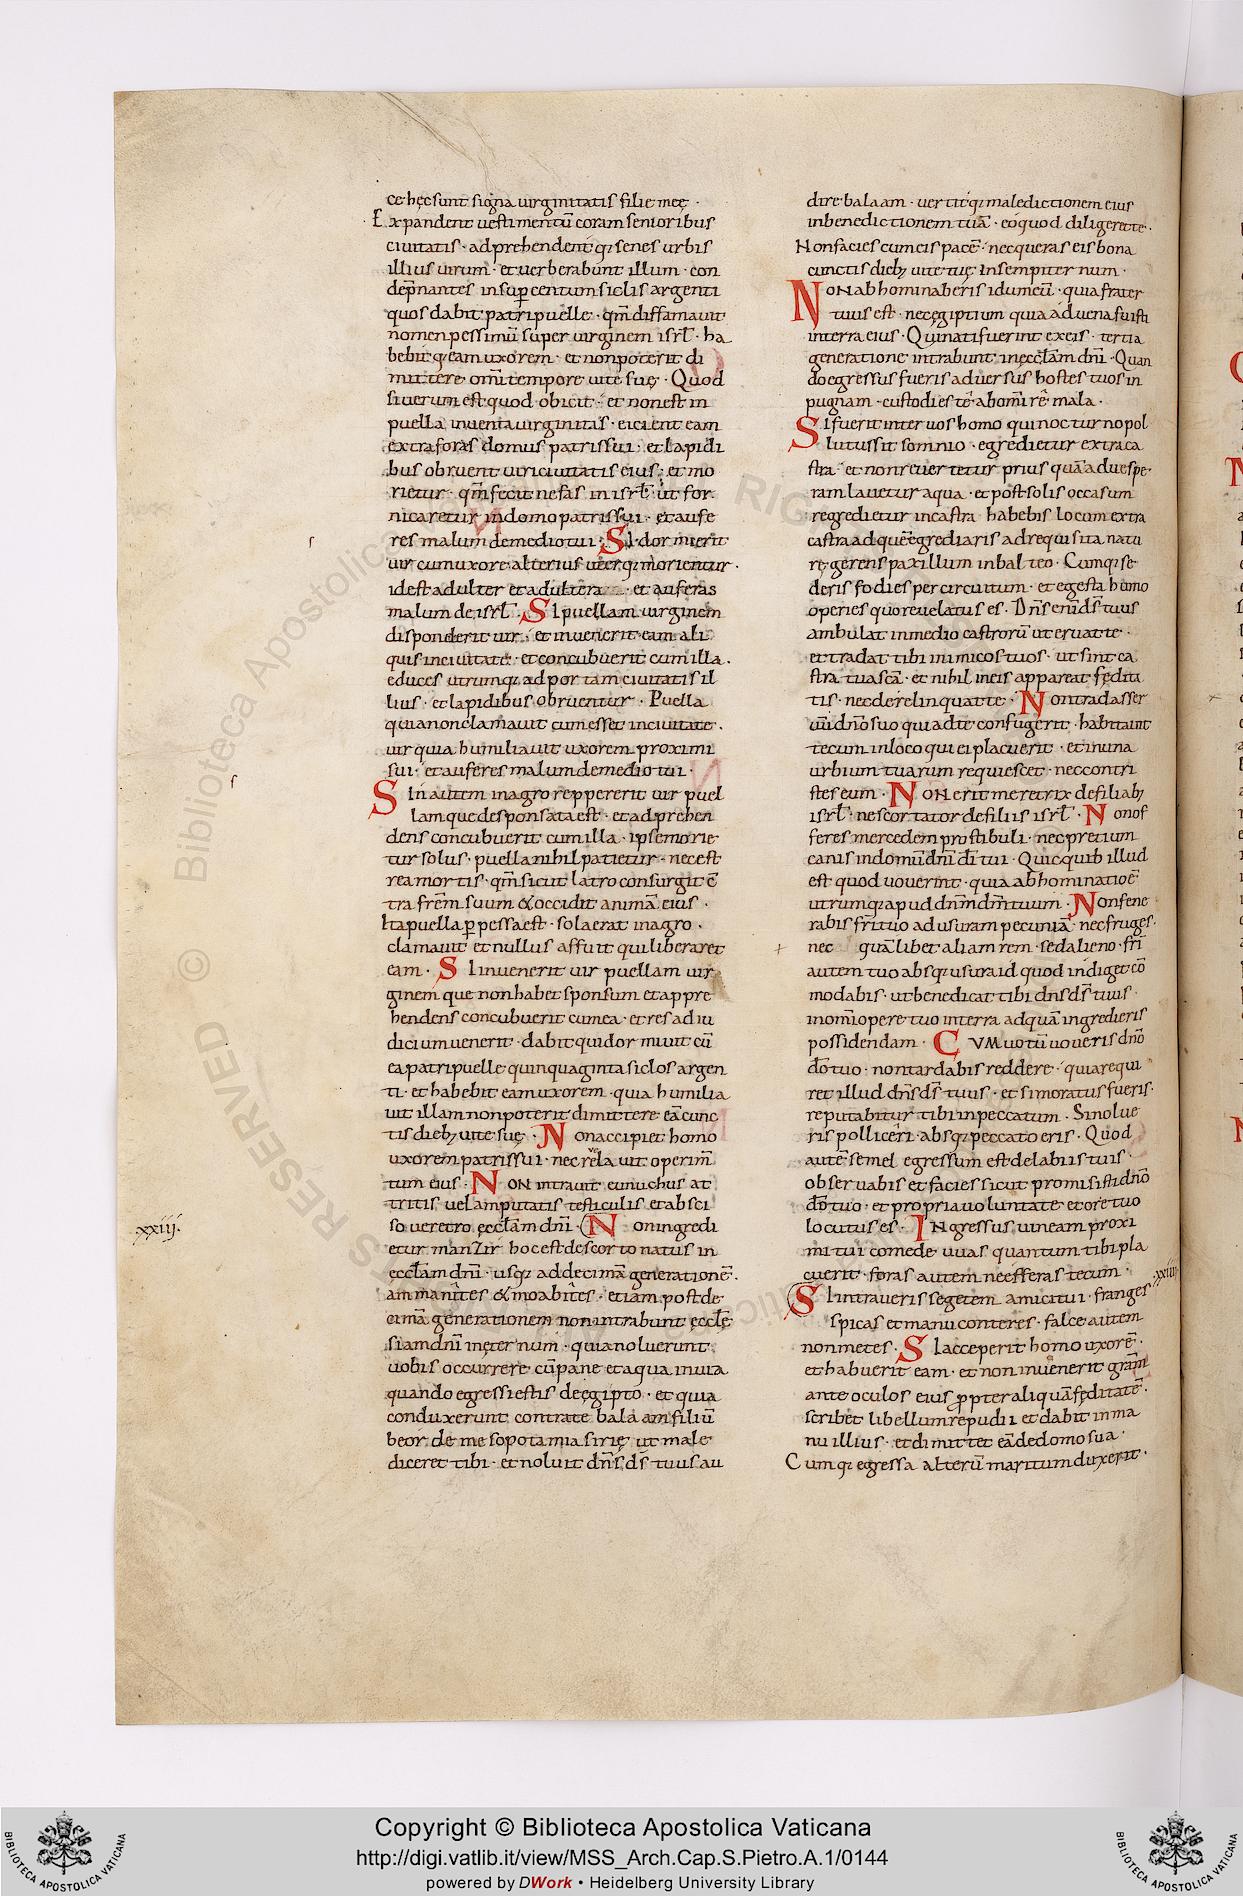 ce hęc sunt signa uirginitatis filie męę ·
Expandent uestimentū coram senioribus
ciuitatis · adprehendentq; senes urbis
illius uirum · et uerberabunt illum · con
dēpnantes insup centum siclis argenti
quos dabit patri puellę · qm̄ diffamauit
nomen pessimū super uirginem isrł · ha
bebitq; eam uxorem · et non poterit di
mittere om̄i tempore uite suę · Quod
si uerum est quod obicit · et non est in
puella inuenta uirginitas · eicient eam
extra foras domus patris sui · et lapidi
bus obruent uiri ciuitatis eius · et mo
rietur · qm̄ fecit nefas in isrł · ut for
nicaretur in domo patris sui · et aufe
res malum de medio tui · Si dormierit
uir cum uxore alterius uterq; morientur ·
id est adulter et adultera · et auferas
malum de isrł · Si puellam uirginem
disponderit uir · et inuenerit eam ali
quis in ciuitate · et concubuerit cum illa ·
educes utrumq; ad portam ciuitatis il
lius · et lapidibus obruentur · Puella
quia non clamauit cum esset in ciuitate ·
uir quia humiliauit uxorem proximi
sui · et auferes malum de medio tui ·
Sin autem in agro reppererit uir puel
lam que desponsata est · et adprehen
dens concubuerit cum illa · ipse morie
tur solus · puella nihil patietur · nec est
rea mortis · qm̄ sicut latro consurgit cō
tra frēm suum & occidit animā eius ·
Ita puella ꝑpessa est · sola erat in agro ·
clamauit et nullus affuit qui liberaret
eam · Si inuenerit uir puellam uir
ginem que non habet sponsum et appre
hendens concubuerit cum ea · et res ad iu
dicium uenerit · dabit qui dormiuit cū
ea patri puelle quinquaginta siclos argen
ti · et habebit eam uxorem · quia humilia
uit illam non poterit dimittere eā cunc
tis dieb; uite suę · Non accipiet homo
uxorem patris sui · nec reuelauit operim̄
tum eius · NON intrauit eunuchus at
tritis uel amputatis testiculis et absci
so ueretro ęccłam dn̄i · Non ingredi
xxiij.
etur manzir hoc est de scorto natus in
ęccłam dn̄i · usq; ad decimā generationē ·
ammanites & moabites · etiam post de
cimā generationem non intrabunt ęcclę
siam dn̄i in ęternum · quia noluerunt
uobis occurrere cū pane et aqua in uia
quando egressi estis de ęgipto · et quia
conduxerunt contra te balaam filiū
beor de mesopotamia sirię ut male
diceret tibi · et noluit dn̄s ds̄ tuus au
dire balaam · uertitq; maledictionem eius
in benedictionem tuā · eo quod diligeret te ·
Non facies cum eis pacē · nec queras eis bona
cunctis dieb; uite tuę in sempiternum ·
NON abhominaberis idumeū · quia frater
tuus est · nec ęgiptium quia aduena fuisti
in terra eius · Qui nati fuerint ex eis · tertia
generatione intrabunt in ęccłam dn̄i · Quan
do egressus fueris aduersus hostes tuos in
pugnam · custodies te ab om̄i re mala ·
Si fuerit inter uos homo qui nocturno pol
lutus sit somnio · egredietur extra ca
stra · et non reuertetur prius quā ad uespe
ram lauetur aqua · et post solis occasum
regredietur in castra habebis locum extra
castra ad quē egrediaris ad requisita natu
rę gerens paxillum in balteo · Cumq; se
deris fodies per circuitum · et egesta humo
operies quo reuelatus es · Dn̄s enī ds̄ tuus
ambulat in medio castrorū ut eruat te ·
et tradat tibi inimicos tuos · ut sint ca
stra tua sc̄a · et nihil in eis appareat fędita
tis · nec derelinquat te · Non trades ser
uū dn̄o suo qui ad te confugerit · habitauit
tecum in loco qui ei placuerit · et in una
urbium tuarum requiescet · nec contri
stes eum · NON erit meretrix de filiab;
isrł · ne scortator de filiis isrł · Non of
feres mercedem prostibuli · nec pretium
canis in domū dn̄i dī tui · Quicquib illud
est quod uouerint · quia abhominatio ē
utrumq; apud dn̄m dm̄ tuum · Non fene
rabis fr̄i tuo ad usuram pecuniā · nec fruges ·
nec quālibet aliam rem · sed alieno · fr̄i
autem tuo absq; usura id quod indiget cō
modabis · ut benedicat tibi dn̄s ds̄ tuus
in om̄i opere tuo in terra ad quā ingredieris
possidendam · CVM uotū uoueris dn̄o
dō tuo · non tardabis reddere · quia requi
ret illud dn̄s ds̄ tuus · et si moratus fueris ·
reputabitur tibi in peccatum · Si nolue
ris polliceri · absq; peccato eris · Quod
autē semel egressum est de labiis tuis ·
obseruabis et facies sicut promisisti dn̄o
dō tuo · et propria uoluntate et ore tuo
locutus es · INgressus uineam proxi
mi tui comede uuas quantum tibi pla
cuerit · foras autem ne efferas tecum ·
xxiiij
Si intraueris segetem amici tui · franges
spicas et manu conteres · falce autem
non metes · Si acceperit homo uxorē ·
et habuerit eam · et non inuenerit gram̄
ante oculos eius ꝓpter aliquā fęditatē ·
scribet libellum repudii et dabit in ma
nu illius · et dimittet eā de domo sua ·
Cumq; egressa alterū maritum duxerit ·
Copyright © Biblioteca Apostolica Vaticana
http://digi.vatlib.it/view/MSS_Arch.Cap.S.Pietro.A.1/0144
powered by DWork • Heidelberg University Library